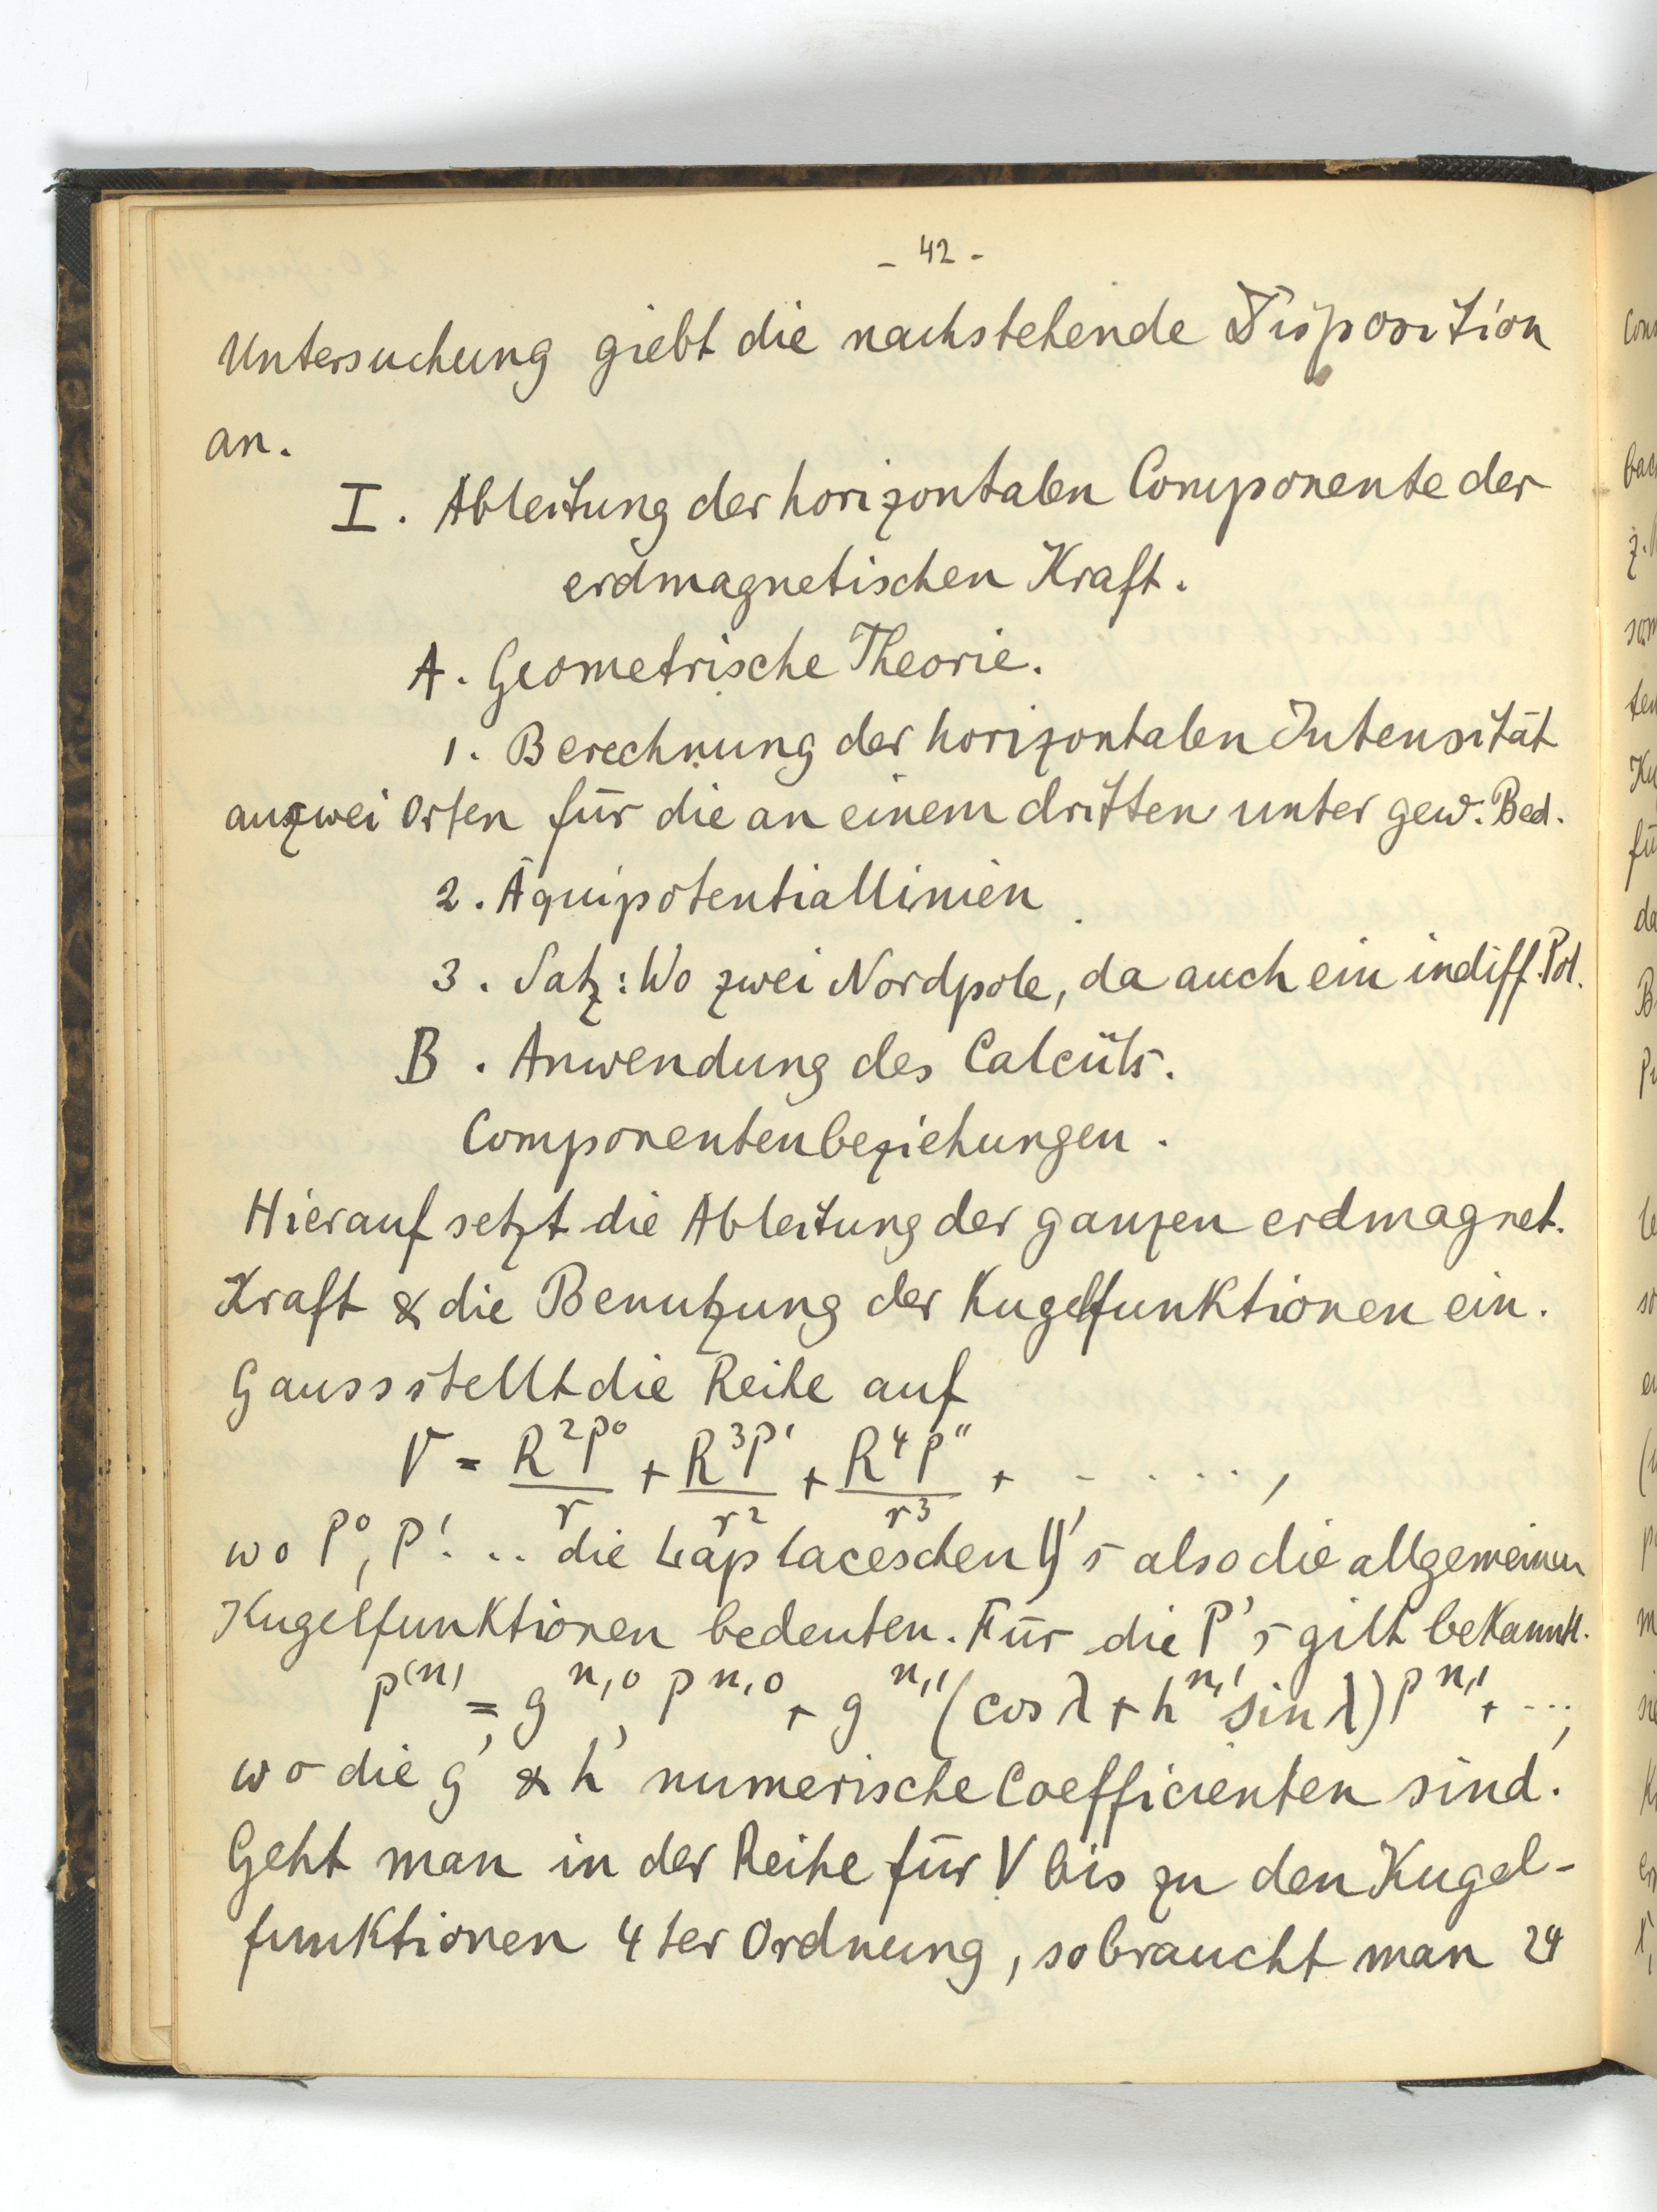 - 42 -
Untersuchung giebt die nachstehende Disposition
an.
I. Ableitung der horizontalen Componente der
erdmagnetischen Kraft.
A. Geometrische Theorie.
1. Berechnung der horizontalen Intensität
an zwei Orten für die an einem dritten unter gew. Bed.
2. Äquipotentiallinien
3. Satz: Wo zwei Nordpole, da auch ein indiff. Pol.
B. Anwendung des Calcüls.
Componentenbeziehungen.
Hierauf setzt die Ableitung der ganzen erdmagnet.
Kraft & die Benutzung der Kugelfunktionen ein.
Gauss stellt die Reihe auf
V = R²P⁰/r + R³P'/r² + R⁴P''/r³ + - . . . . ,
wo P⁰, P' . .. die Laplaceschen Y's also die allgemeinen
Kugelfunktionen bedeuten. Für die P's gilt bekanntl.
P⁽ⁿ⁾ = g^{n,0} P^{n,0} + g^{n,1} (cos λ + h^{n,1} sin λ) P^{n,1} + ...,
wo die g' & h' numerische Coefficienten sind.
Geht man in der Reihe für V bis zu den Kugel-
funktionen 4ter Ordnung, so braucht man 24